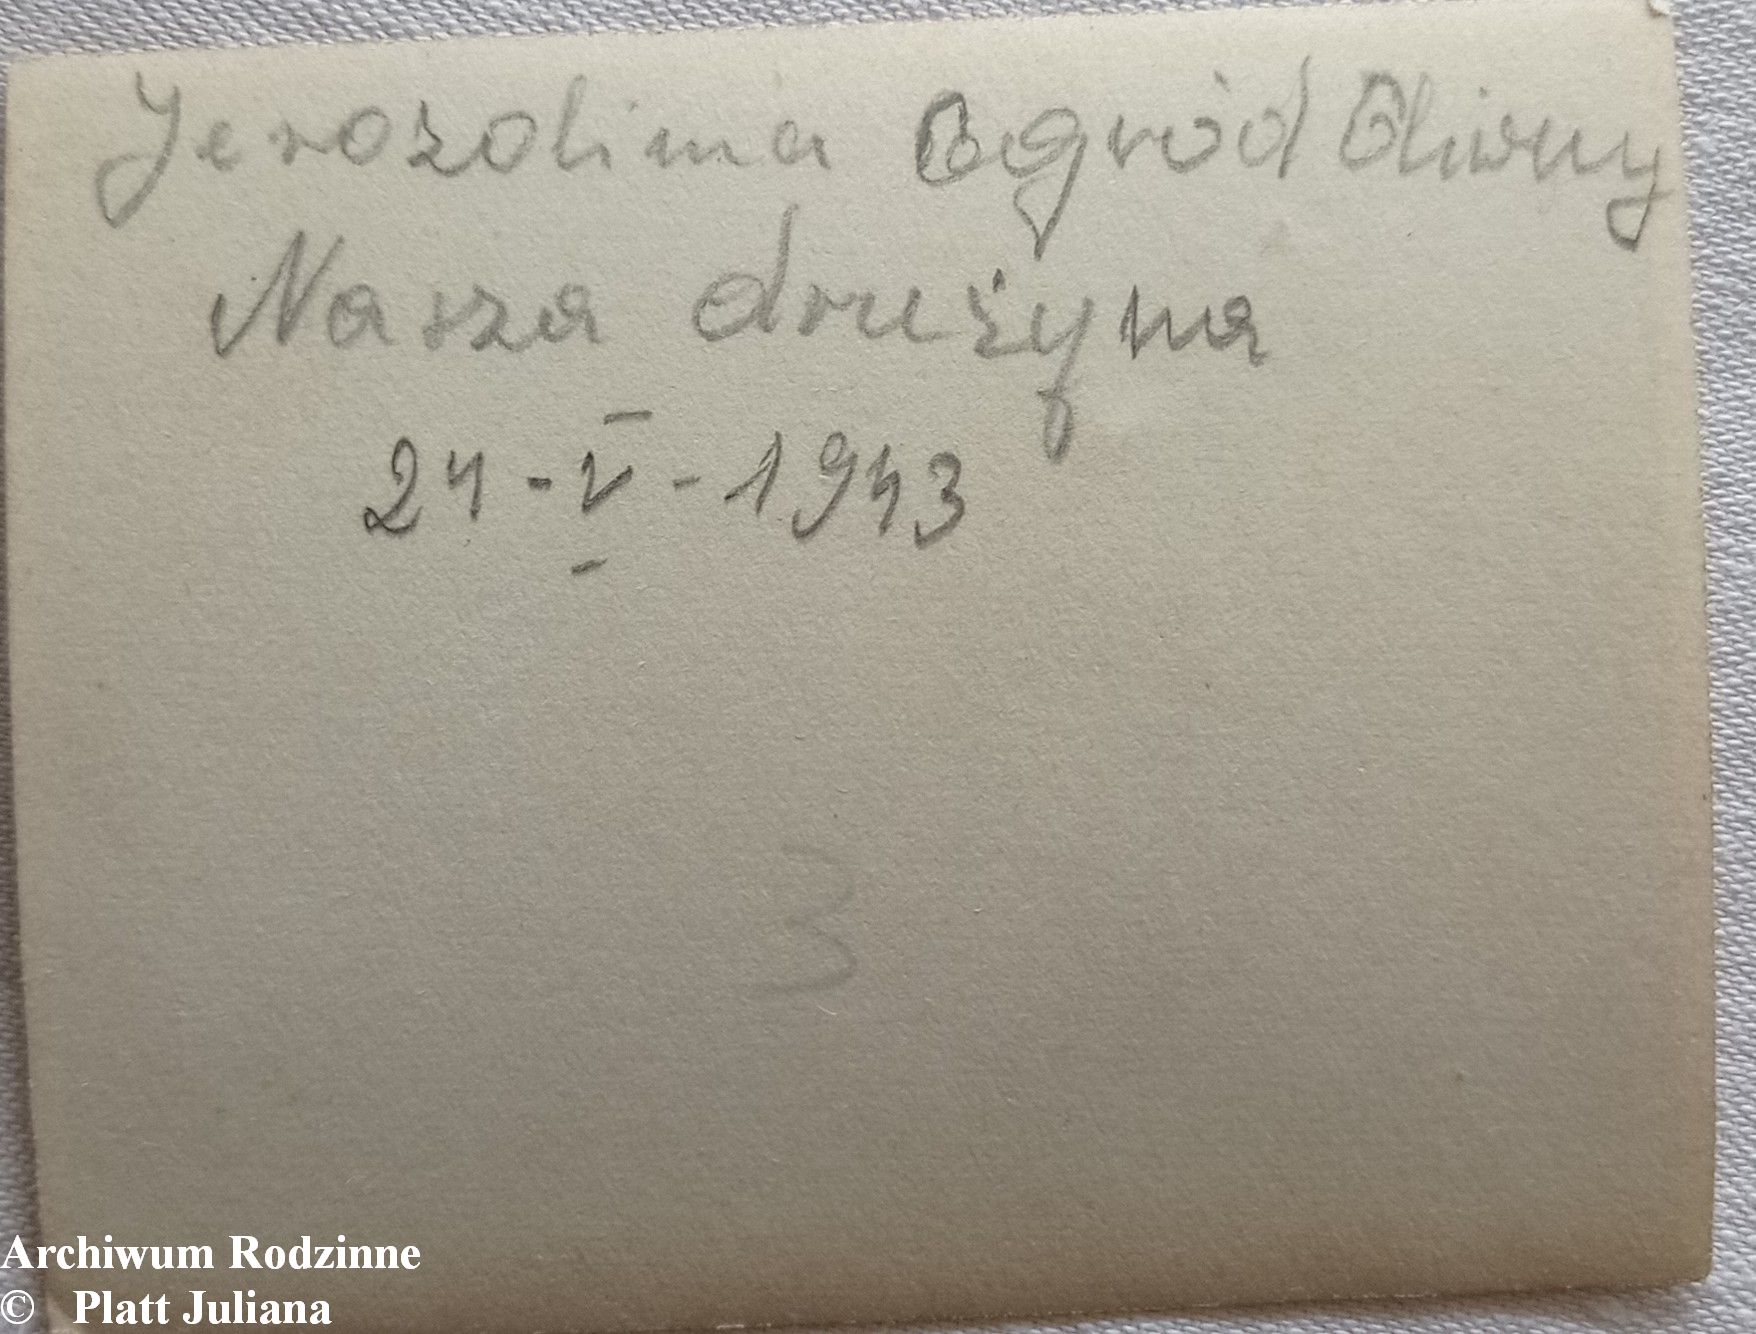 Jerozolima Ogród Oliwny
Nasza drużyna
24-V-1943
3
Archiwum Rodzinne
© Platt Juliana